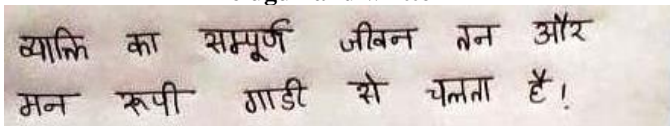 व्यक्ति का सम्पूर्ण जीवन तन और
मन रूपी गाडी से चलता है!